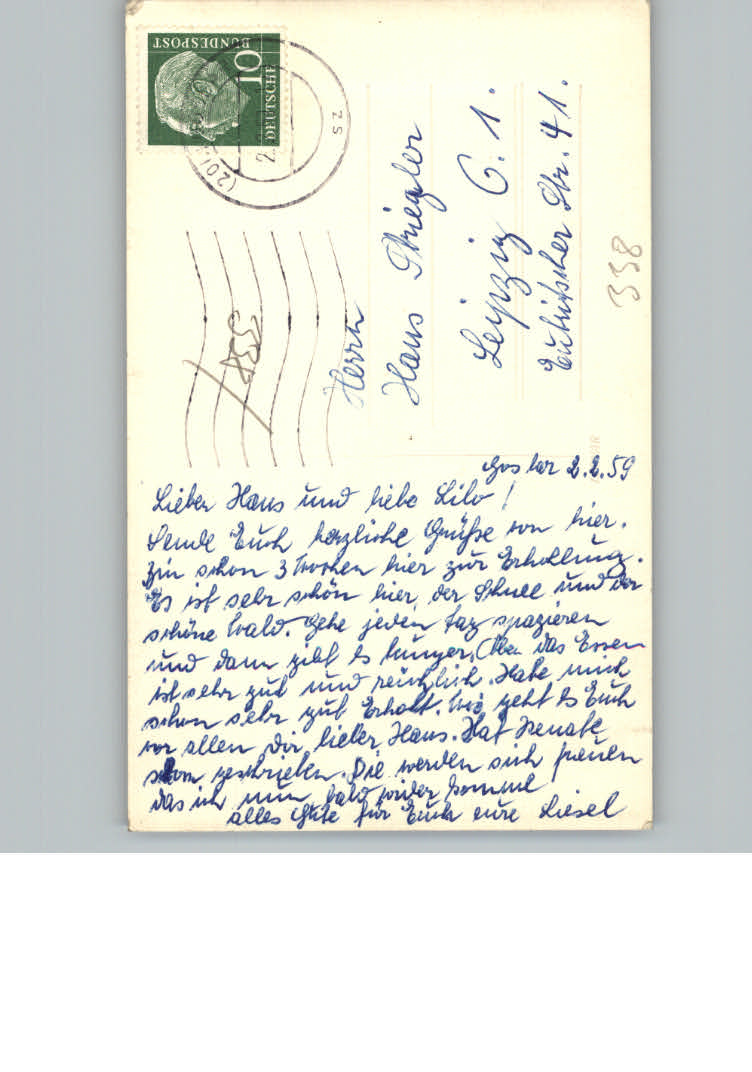 Goslar 2.2.59
Lieber Hans und liebe Lilo!
Sende Euch herzliche Grüße von hier.
Bin schon 3 Wochen hier zur Erhollung.
Es ist sehr schön hier, der Schnee und der
schöne Wald. Gehe jeden Tag spazieren
und dann gibt es hunger. Aber das Essen
ist sehr gut und reichlich. Habe mich
schon sehr gut Erholt. Wie geht es Euch
vor allen dir, lieber Hans. Hat Renate
schon geschrieben. Die werden sich freuen
das ich nun bald wider komme
alles Gute für Euch eure Liesel
Herrn
Hans Striegler
Leipzig C. 1.
Str. 41.
338
338
DEUTSCHE
BUNDESPOST
10
(20b)
2.
zs